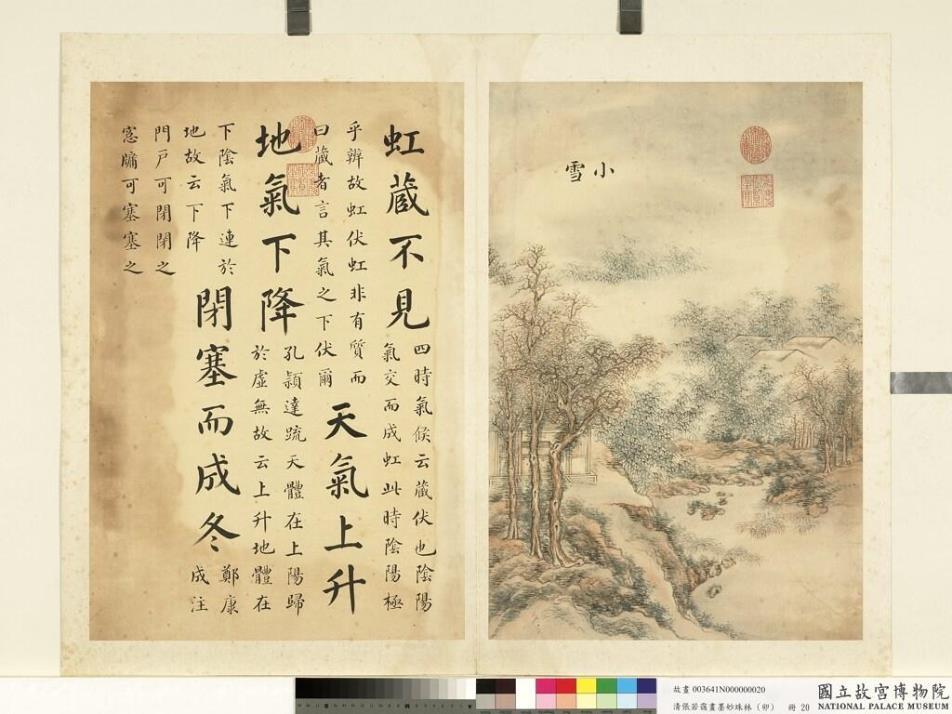 小雪
虹藏不見
四時氣候云藏伏也陰陽
氣交而成虹此時陰陽極
乎辨故虹伏虹非有質而
曰藏者言其氣之下伏爾
天氣上升
地氣下降
孔穎達疏天體在上陽歸
於虛無故云上升地體在
下陰氣下連於
地故云下降
閉塞而成冬
鄭康
成注
門戶可閉閉之
窓牖可塞塞之
故畫 003641N000000020
清張若靄畫墨妙珠林（卯） 冊 20
國立故宮博物院
NATIONAL PALACE MUSEUM